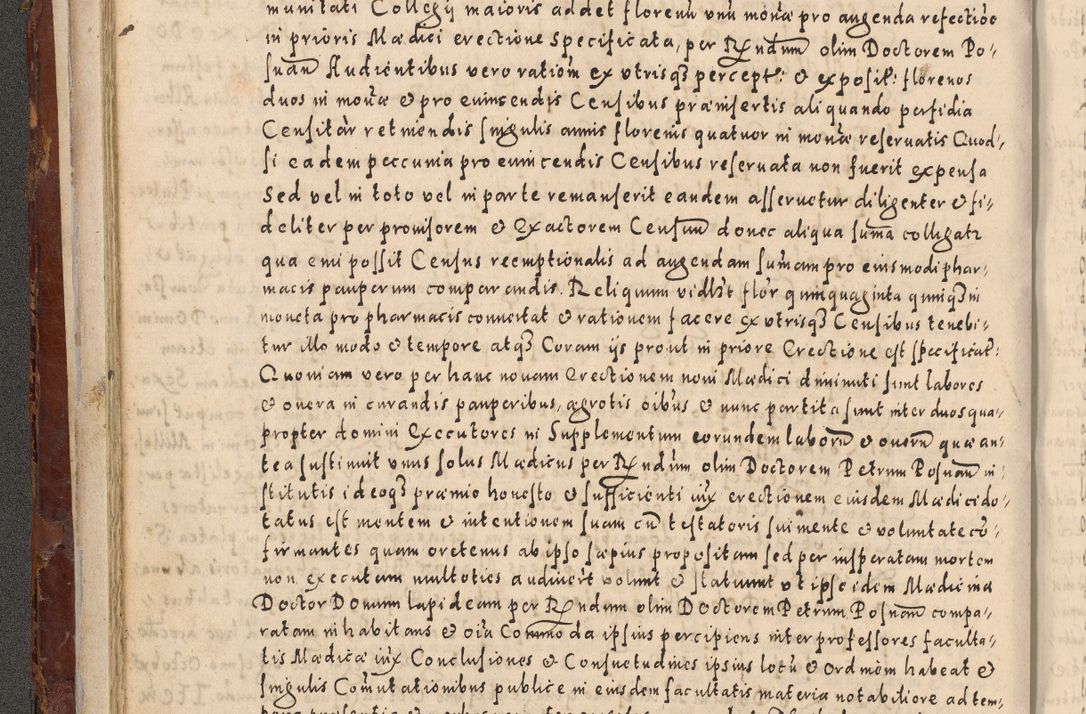 munitati Collegij maioris addet florenū unū monæ pro augenda refectiōe
in prioris Mædici erectione specificata, per Rndum olim Doctorem Po-
snan̄ Audientibus vero ratiōm ex utrisq3 percept: & exposit: florenos
duos in monæ & pro euincendis Censibus præinsertis aliquando perfidia
Censitar̄ retinendis singulis annis florenis quatuor in monæ reseruatis Quod-
si eadem peccunia pro euincendis Censibus reseruata non fuerit expensa
Sed vel in toto vel in parte remanserit eandem asseruetur diligenter & fi-
deliter per prouisorem & Exactorem Censuum donec aliqua suma colligatr
qua emi possit Census reemptionalis ad augendam sumam pro eiusmodi phar-
macis pauperum comparandis. Reliquum vidlzt flor quinquaginta quinq3 in
moneta pro pharmacis conuertat & rationem facere ex utrisq3 Censibus tenebi-
tur illo modo & tempore atq3 Coram ijs prout in priore Erectione est specificat:
Quoniam vero per hanc nouam Erectionem noui Mædici diminuti sunt labores
& onera in curandis pauperibus, ægrotis oībus & nunc partita sunt inter duos qua-
propter domini Executores in Supplementum eorundem laborū & onerū quæ an-
tea sustinuit unus solus Mædicus per Rndum olim Doctorem Petrum Posnan̄ in-
stitutis ideoq3 præmio honesto & sufficienti iux erectionem eiusdem Mædici do-
tatus est mentem & intentionem suam cū testatoris sui mente & voluntate cō-
firmantes quam oretenus ab ipso sæpius propositam sed per insperatam mortem
non executam multoties audiuerit volunt & statuunt ut ipse idem Mædicinæ
Doctor Donum lapideam per Rndum olim Doctorem Petrum Posnan̄ compa-
ratam inhabitans & oīa Commoda ipsius percipiens inter professores faculta-
tis Mædicæ iux Conclusiones & Consuetudines ipsius locū & ordinem habeat &
singulis Comutationibus publice in eiusdem facultatis materia notabiliore ad tem-